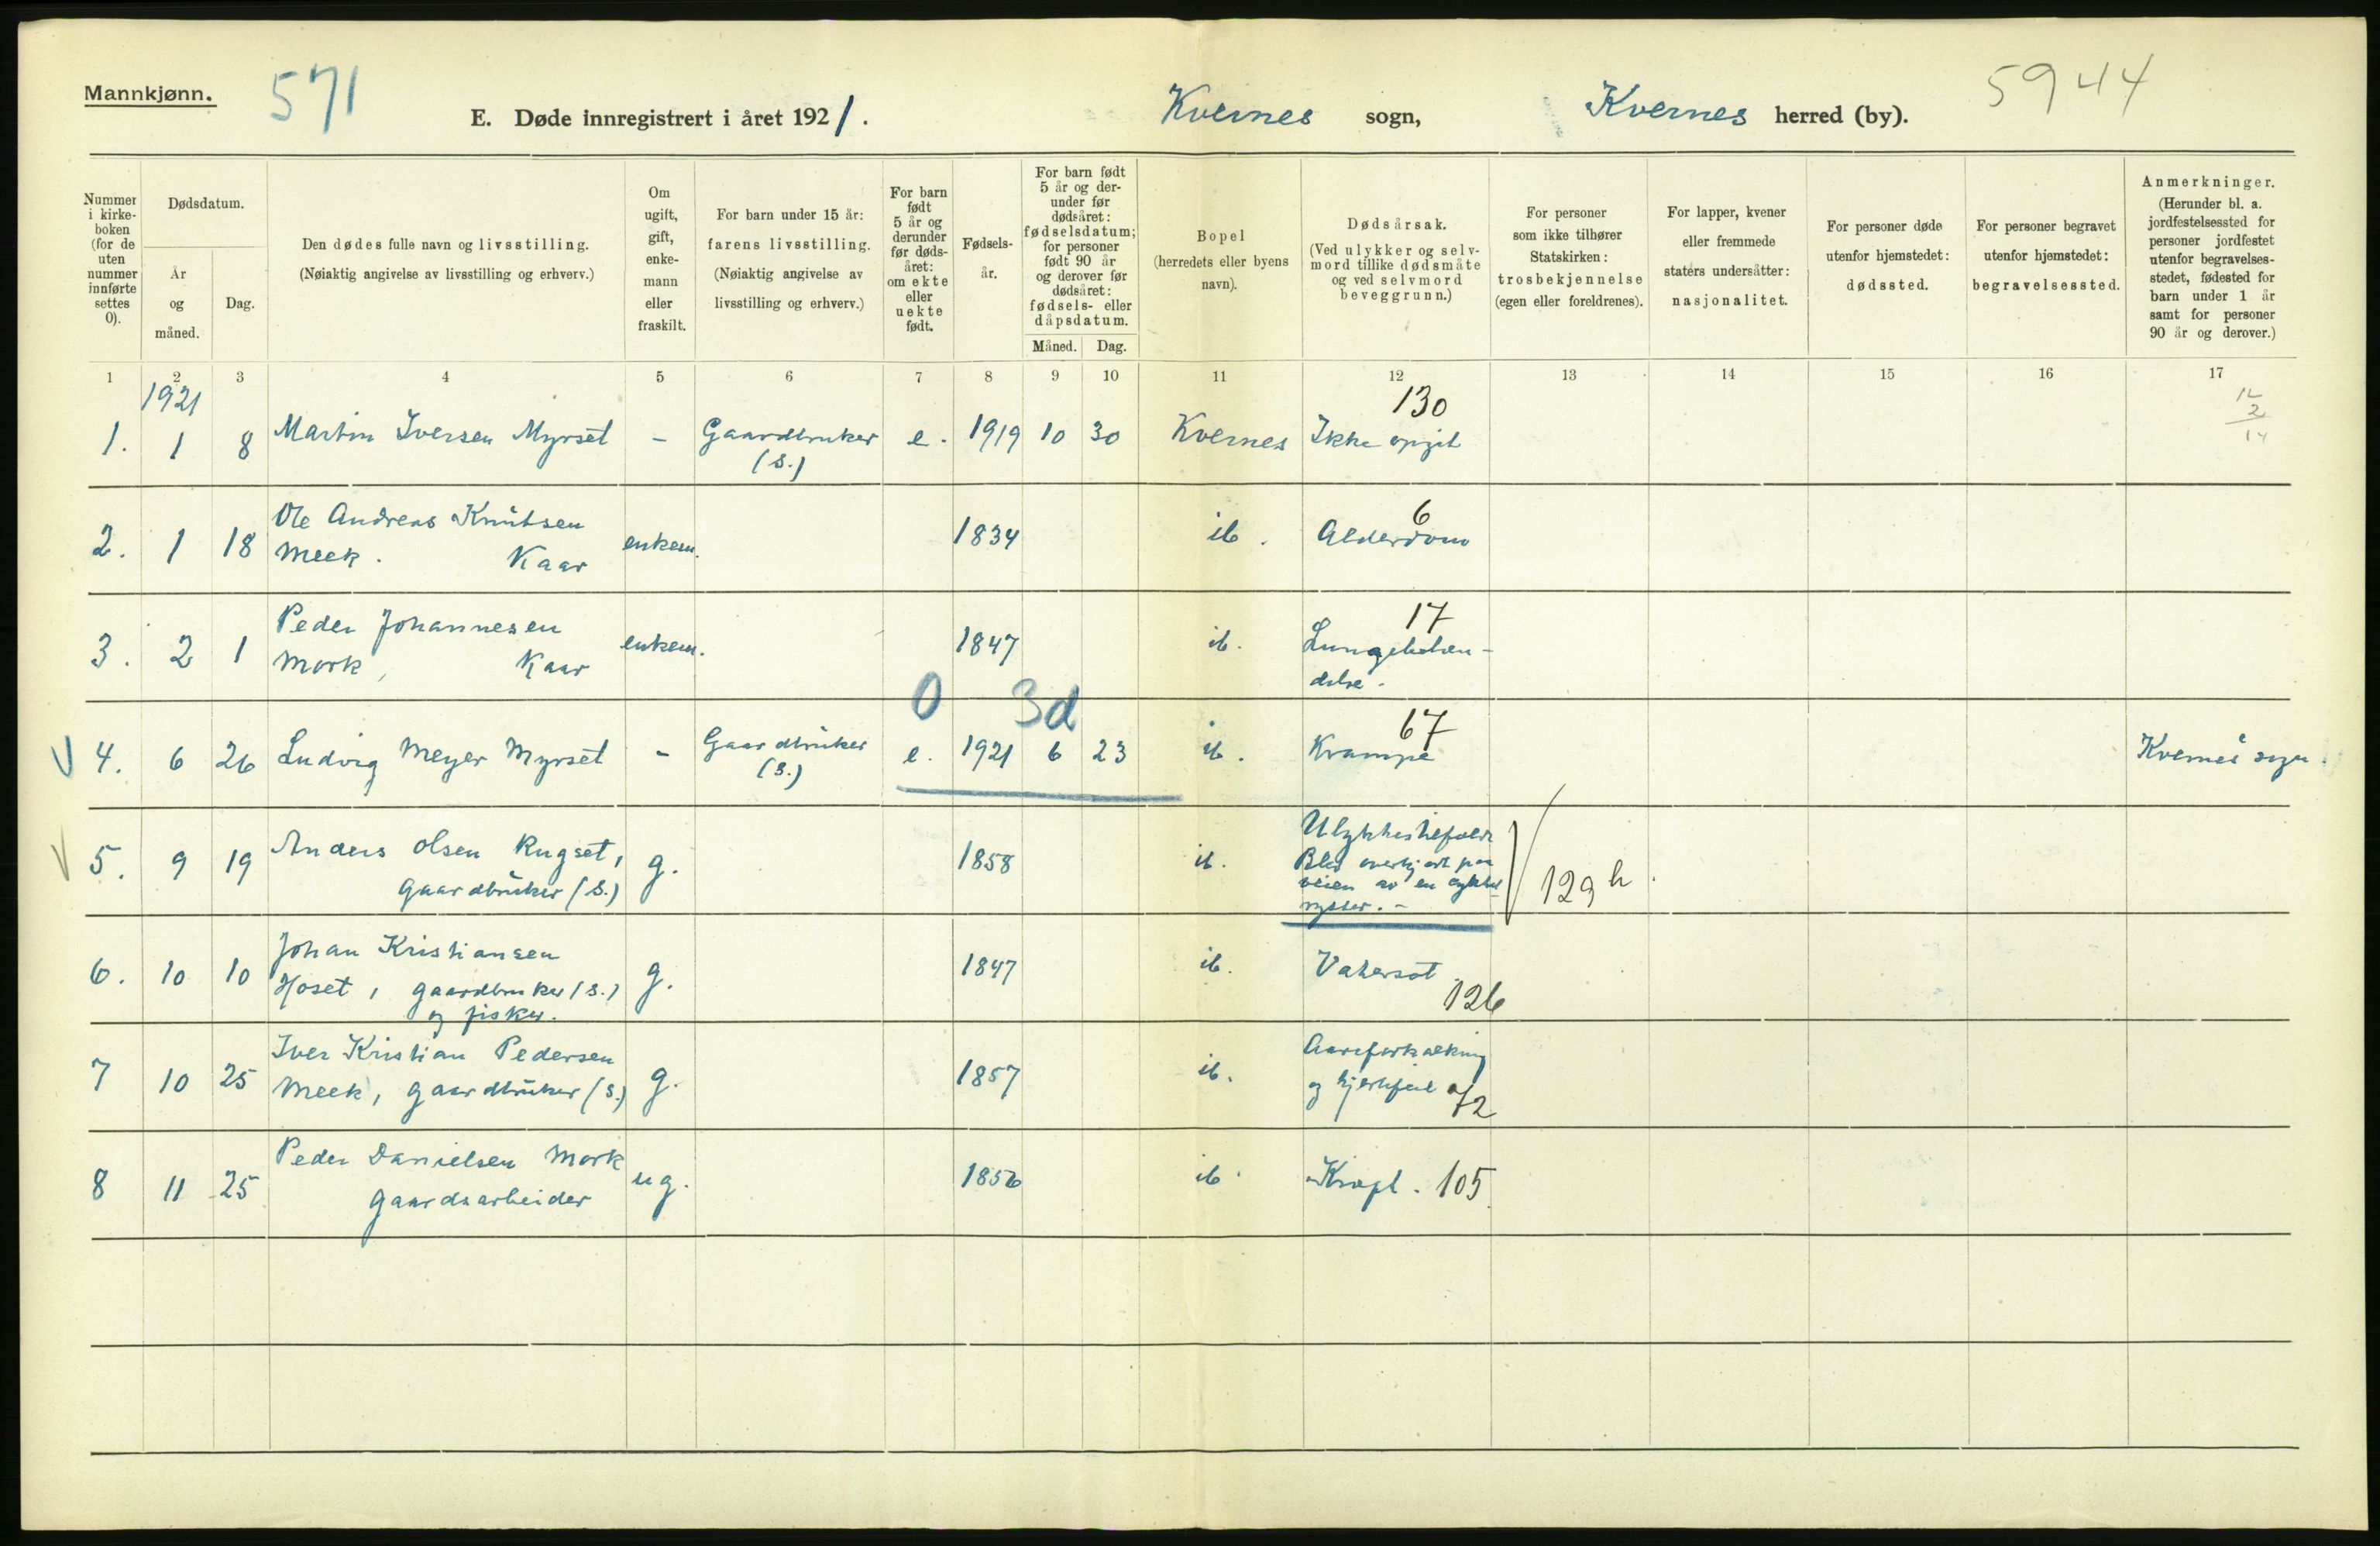 Mannkjønn.
571
E. Døde innregistrert i året 1921.
Kvernes sogn,
Kvernes herred (by).
5944
Nummer i kirkeboken (for de uten nummer innførte settes 0).
Dødsdatum.
År og måned.
Dag.
Den dødes fulle navn og livsstilling.
(Nøiaktig angivelse av livsstilling og erhverv.)
Om ugift, gift, enkemann eller fraskilt.
For barn under 15 år:
farens livsstilling.
(Nøiaktig angivelse av livsstilling og erhverv.)
For barn født 5 år og derunder før dødsåret: om ekte eller uekte født.
Fødselsår.
For barn født 5 år og derunder før dødsåret: fødselsdatum; for personer født 90 år og derover før dødsåret: fødsels- eller dåpsdatum.
Måned. Dag.
Bopel
(herredets eller byens navn).
Dødsårsak.
(Ved ulykker og selvmord tillike dødsmåte og ved selvmord beveggrunn.)
For personer som ikke tilhører Statskirken: trosbekjennelse (egen eller foreldrenes).
For lapper, kvener eller fremmede staters undersåtter: nasjonalitet.
For personer døde utenfor hjemstedet: dødssted.
For personer begravet utenfor hjemstedet: begravelsessted.
Anmerkninger.
(Herunder bl. a. jordfestelsessted for personer jordfestet utenfor begravelsesstedet, fødested for barn under 1 år samt for personer 90 år og derover.)
1 2 3 4 5 6 7 8 9 10 11 12 13 14 15 16 17
1921
130
12
2
14
1. 1 8 Martin Iversen Myrset - Gaardbruker (S.) e. 1919 10 30 Kvernes Ikke opgit
2. 1 18 Ole Andreas Knutsen
Meek. Kaar enkem. 1834 ib. Alderdom 6
3. 2 1 Peder Johannesen
Mork, Kaar enkem. 1847 ib. Lungebetændelse. 17
0 3d
V 4. 6 26 Ludvig Meyer Myrset - Gaardbruker (S.) e. 1921 6 23 ib. Krampe 67 Kvernes sogn.
V 5. 9 19 Anders Olsen Rugset,
Gaardbruker (S.) g. 1858 ib. Ulykkestilfælde
Blev overkjørt paa
veien av en cykkel-
rytter. -
129 h.
6. 10 10 Johan Kristiansen
Hoset, gaardbruker (S.)
og fisker. g. 1847 ib. Vatersot 126
7 10 25 Iver Kristian Pedersen
Meek, gaardbruker (S.) g. 1857 ib. Aareforkalkning
og hjertefeil 72
8 11 25 Peder Danielsen Mork
Gaardsarbeider ug. 1856 ib. Kræft. 105